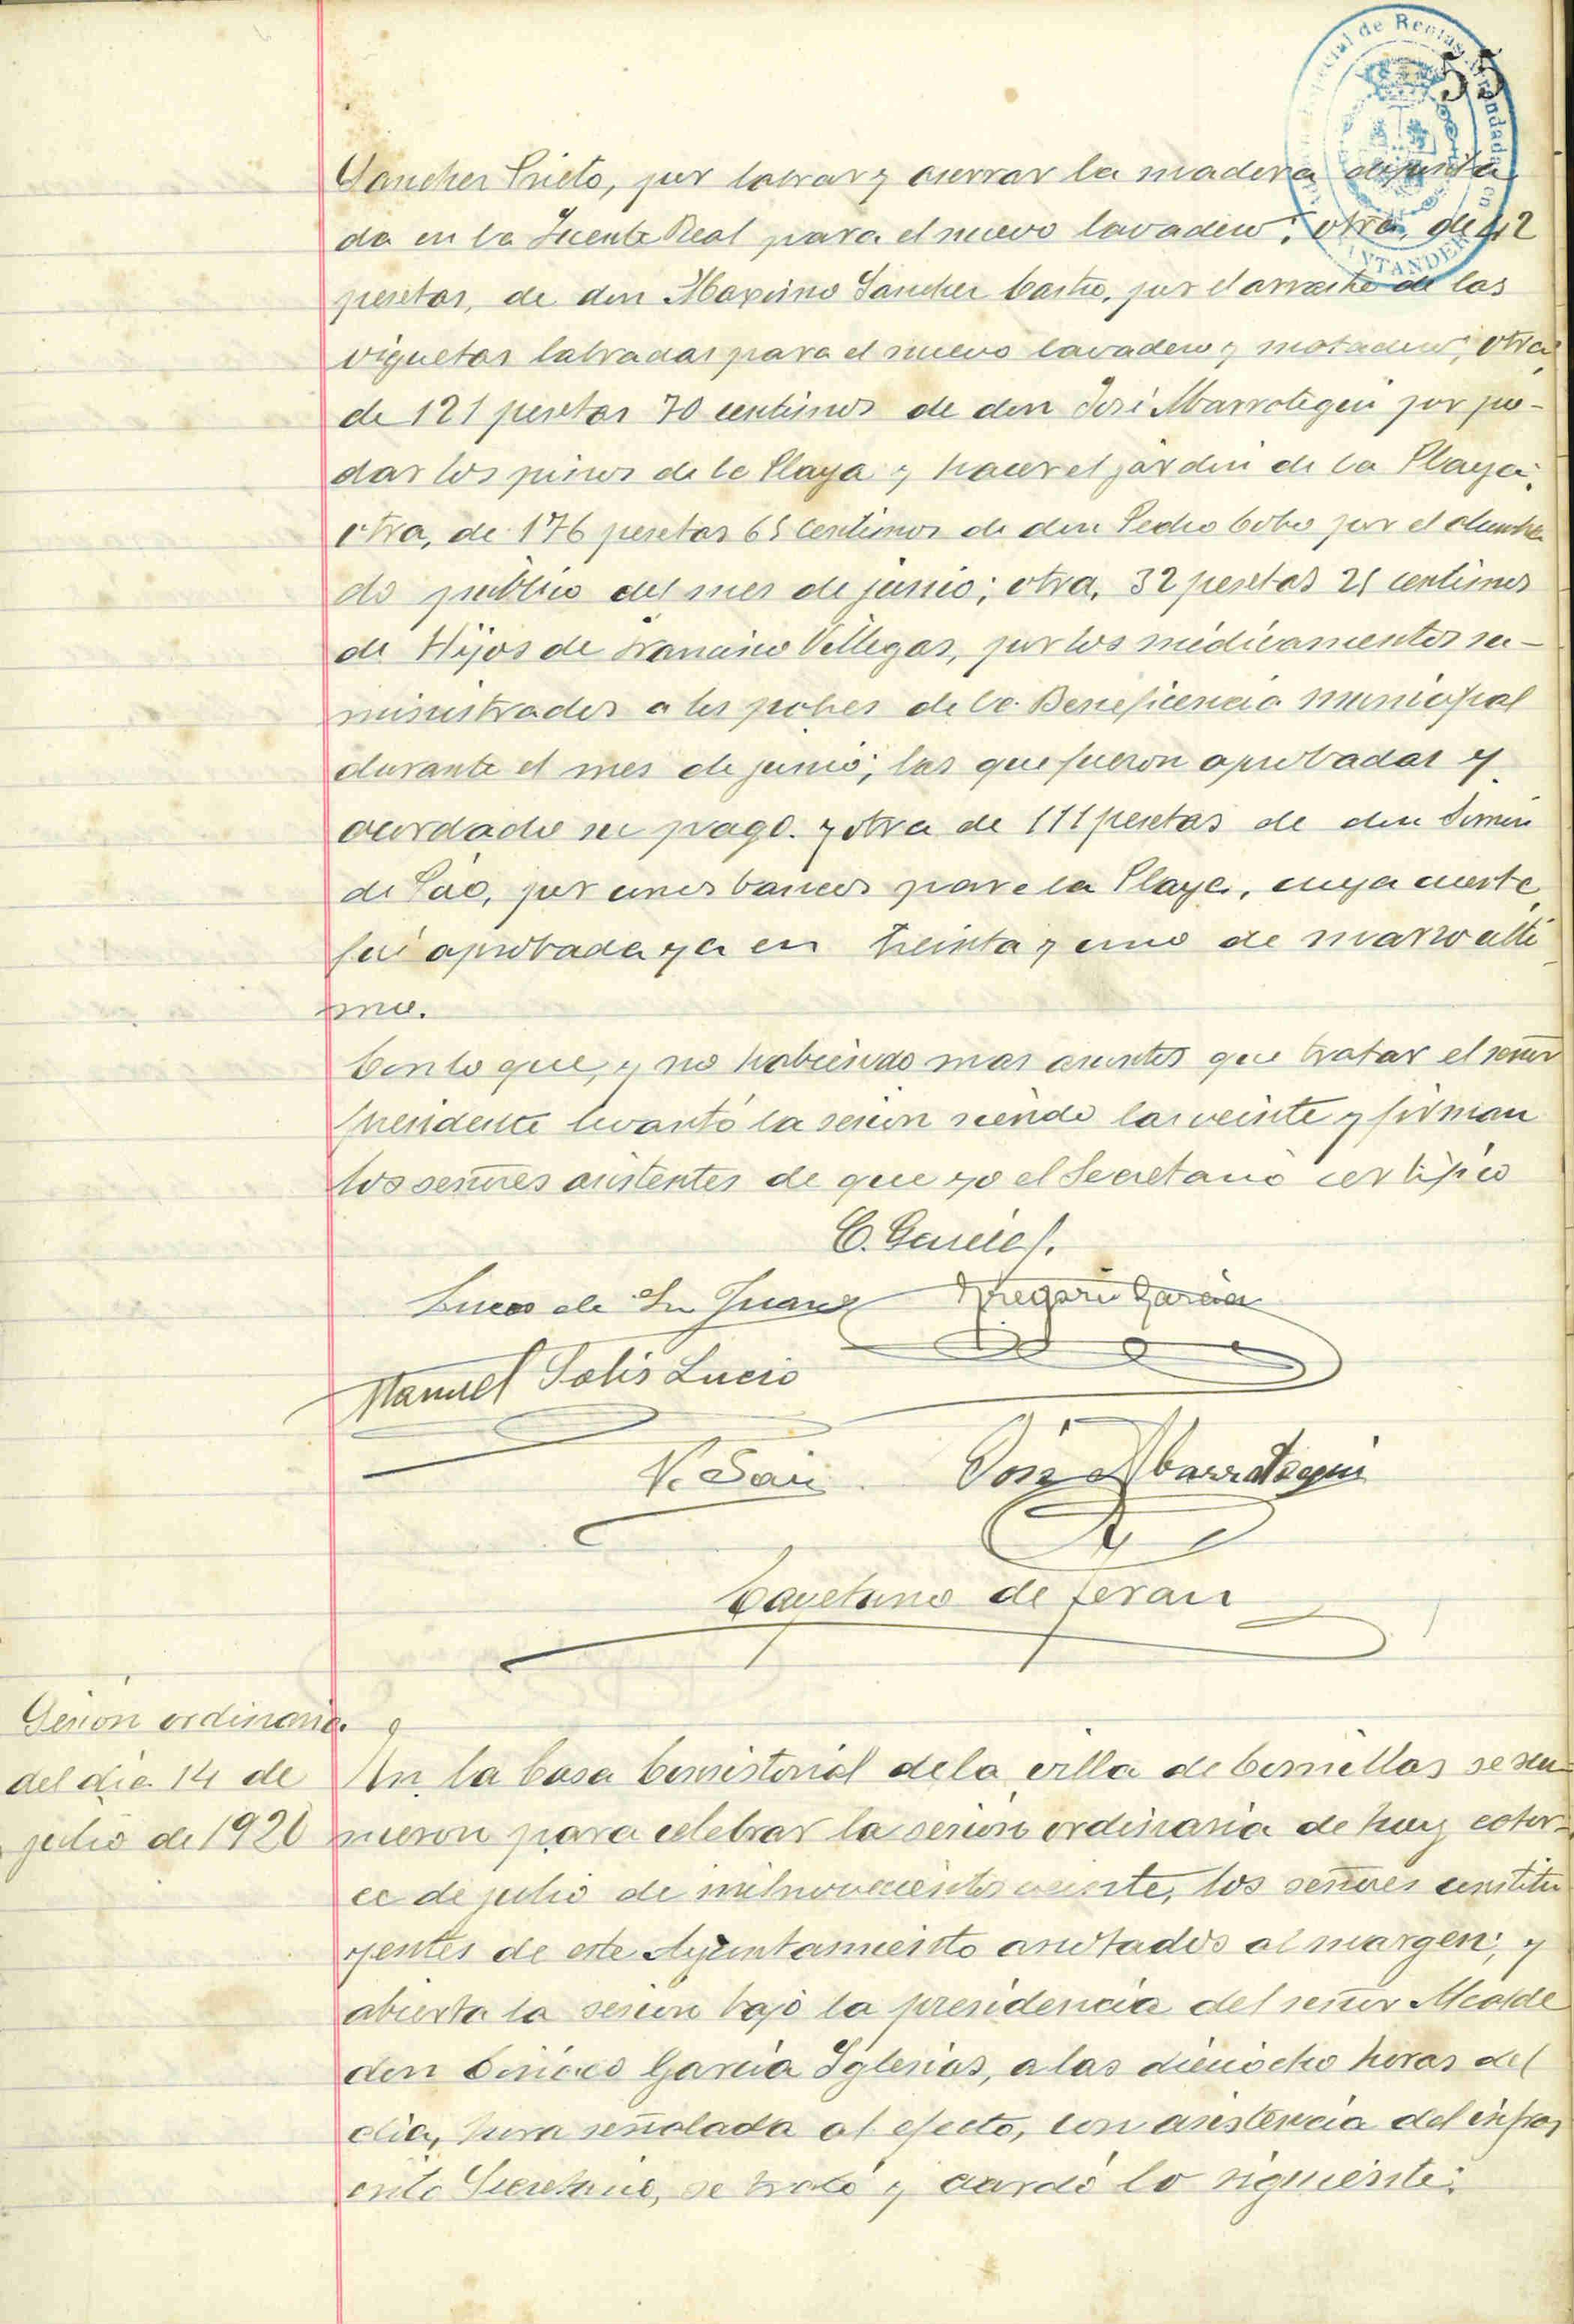 55
Sanchez Prieto, por labrar y aserrar la madera deposita
da en la Fuente Real para el nuevo lavadero; otra, de 42
pesetas, de don Maximo Sanchez Castro, por el arrastre de las
viguetas labradas para el nuevo lavadero y matadero; otra
de 121 pesetas 70 centimos de don José Marrotegui por po-
dar los pinos de la Playa y hacer el jardin de la Playa;
otra, de 176 pesetas 65 centimos de don Pedro Cobo por el alumbra
do publico del mes de junio; otra, 32 pesetas 25 centimos
de Hijos de Francisco Villegas, por los medicamentos su-
ministrados a los pobres de la Beneficencia municipal
durante el mes de junio; las que fueron aprobadas y
acordado su pago. y otra de 111 pesetas de don Simón
de Páo, por unos bancos para la Playa, cuya cuenta
fué aprobada ya en treinta y uno de marzo ulti
mo.
Con lo que, y no habiendo mas asuntos que tratar el señor
presidente levantó la sesion siendo las veinte y firman
los señores asistentes de que yo el Secretario certifico
C. García J.
Lucas de Sn Juan Gregorio Garcia
Manuel Solis Lucio
V. Saiz José Marrotegui
Cayetano de Teran
Sesion ordinaria
del dia 14 de
julio de 1920
En la Casa Consistorial de la villa de Comillas se reu-
nieron para celebrar la sesion ordinaria de hoy cator-
ce de julio de mil novecientos veinte, los señores constitu
yentes de este Ayuntamiento anotados al margen; y
abierta la sesion bajo la presidencia del señor Alcalde
don Ciriaco Garcia Iglesias, a las dieciocho horas del
dia, hora señalada al efecto, con asistencia del infras
crito Secretario, se trató y acordó lo siguiente: